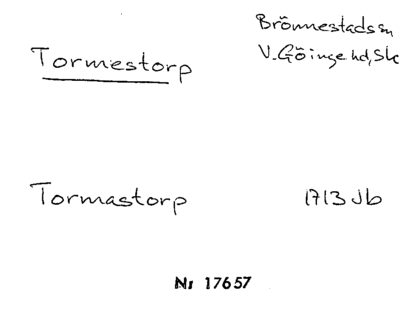 Tormestorp
Brönnestads sn
V. Göinge hd, Sk
Tormastorp
1713 Jb
Nr 17657